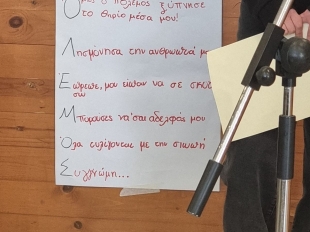 Όμως ο πόλεμος ξύπνησε
το θηρίο μέσα μου!
Λησμόνησα την ανθρωπιά μ
Εχθρέ, μου είπαν να σε σκοτ
Μπορούσες να 'σαι αδελφός μου
Όλα τυλίγονται με την σιωπή
Συγγνώμη...